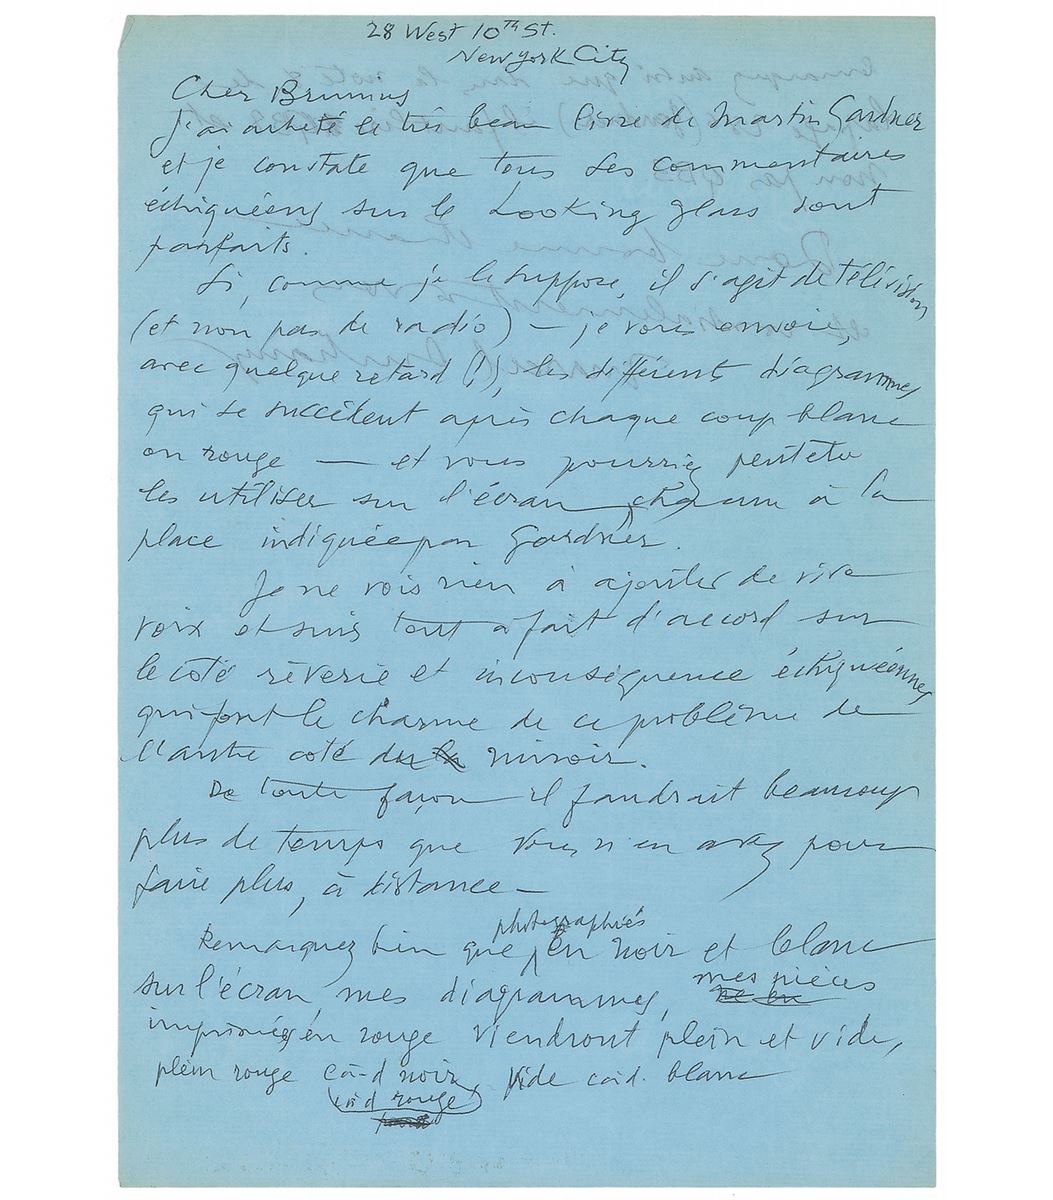 28 West 10th St.
New York City
Cher Brunius
J'ai acheté le très beau livre de Martin Gardner
et je constate que tous ses commentaires
échiquéens sur le Looking glass sont
parfaits.
Si, comme je le suppose, il s'agit de télévision
(et non pas de radio) — je vous envoie,
avec quelque retard (!), les différents diagrammes
qui se succèdent après chaque coup blanc
ou rouge — et vous pourriez peutetre
les utiliser sur l'écran, chacun à la
place indiquée par Gardner.
Je ne vois rien à ajouter de vive
voix et suis tout a fait d'accord sur
le coté rêverie et inconséquence échiquéennes
qui font le charme de ce problème de
l'autre coté du miroir.
De toute façon il faudrait beaucoup
plus de temps que vous n'en avez pour
faire plus, à distance —
Remarquez bien que photographiés en noir et blanc
sur l'écran, mes diagrammes, mes pièces
imprimées en rouge viendront plein et vide,
plein rouge cà-d noir, vide càd. blanc
càd rouge